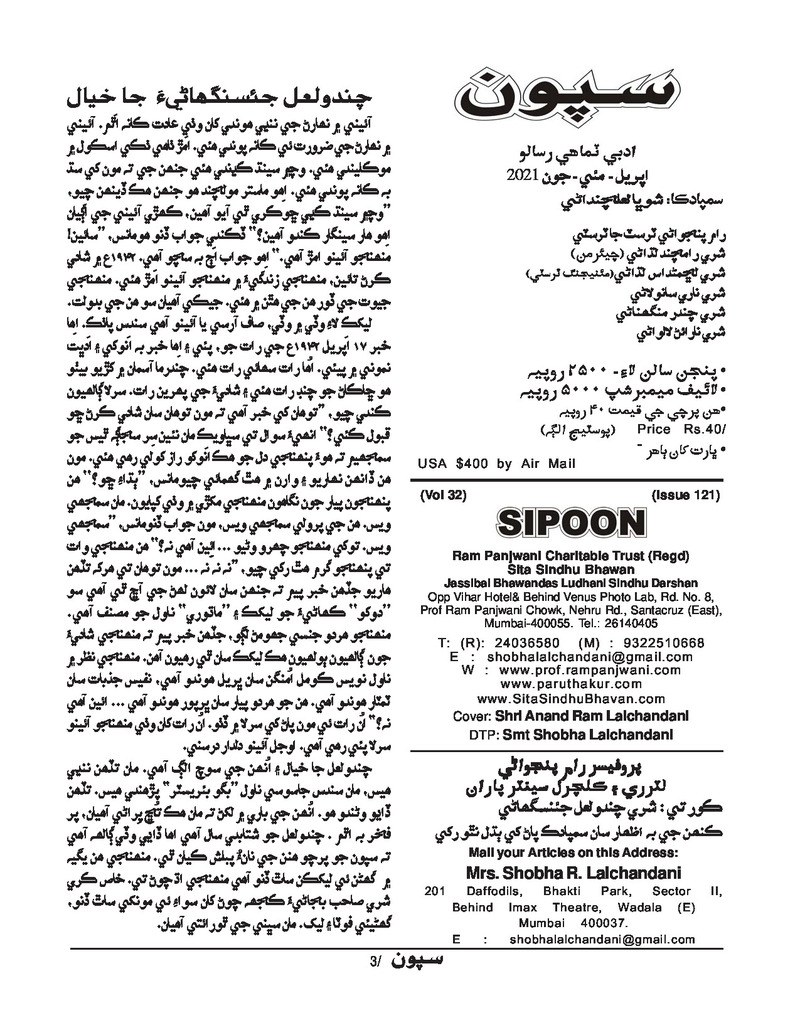 سپون
ادبي ٽماهي رسالو
اپريل - مئي - جون 2021
سمپادڪا: شوڀا لعلچنداڻي
رام پنجواڻي ٽرسٽ جا ٽرسٽي
شري رامچند لڌاڻي (چيئرمن)
شري لڇمڻداس لڌاڻي (مئنيجنگ ٽرسٽي)
شري ناري سانولاڻي
شري چندر منگهناڻي
شري نارائڻ لالواڻي
• پنجن سالن لاءِ - ۲۵۰۰ روپيہ
• لائيف ميمبرشپ ۵۰۰۰ روپيہ
• هن پرچي جي قيمت ۴۰ روپيہ
Price Rs.40/ (پوسٽيج الڳ)
• ڀارت کان ٻاهر -
USA $400 by Air Mail
(Vol 32) (Issue 121)
SIPOON
Ram Panjwani Charitable Trust (Regd)
Sita Sindhu Bhawan
Jassibai Bhawandas Ludhani Sindhu Darshan
Opp Vihar Hotel& Behind Venus Photo Lab, Rd. No. 8,
Prof Ram Panjwani Chowk, Nehru Rd., Santacruz (East),
Mumbai-400055. Tel.: 26140405
T: (R): 24036580 (M) : 9322510668
E : shobhalalchandani@gmail.com
W : www.prof.rampanjwani.com
www.paruthakur.com
www.SitaSindhuBhavan.com
Cover: Shri Anand Ram Lalchandani
DTP: Smt Shobha Lalchandani
پروفيسر رام پنجواڻي
لٽرري ۽ ڪلچرل سينٽر پاران
ڪورتي: شري چندولعل جئسنگهاڻي
ڪنهن جي بہ اظهار سان سمپادڪ پاڻ کي ٻڌل نٿو رکي
Mail your Articles on this Address:
Mrs. Shobha R. Lalchandani
201 Daffodils, Bhakti Park, Sector II,
Behind Imax Theatre, Wadala (E)
Mumbai 400037.
E : shobhalalchandani@gmail.com
چندولعل جئسنگهاڻيءَ جا خيال
آئيني ۾ نهارڻ جي ننڍي هوندي کان وٺي عادت ڪانہ اٿم. آئيني
۾ نهارڻ جي ضرورت ئي ڪانہ پوندي هئي. امڙ ٺاهي ٺڪي اسڪول ۾
موڪليندي هئي. وڇو سينڌ ڪڍندي هئي جنهن جي تہ مون کي سڌ
بہ ڪانہ پوندي هئي. اِهو ماستر مولچند هو جنهن هڪ ڏينهن چيو،
”وڇو سينڌ ڪڍي ڇوڪري ٿي آيو آهين، ڪهڙي آئيني جي اڳيان
اِهو هار سينگار ڪندو آهين؟“ ٽڪندي جواب ڏنو هومانس، ”سائين!
منهنجو آئينو امڙ آهي.“ اهو جواب اڄ بہ سچو آهي. ۱۹۴۲ع ۾ شادي
ڪرڻ تائين، منهنجي زندگيءَ ۾ منهنجو آئينو امڙ هئي. منهنجي
جيوت جي ڏور هن جي هٿن ۾ هئي. جيڪي آهيان سو هن جي بدولت.
ليکڪ لاءِ وٽي ۾ وٽي، صاف آرسي يا آئينو آهي سندس پاٺڪ. اِها
خبر ۱۷ اپريل ۱۹۴۲ع جي رات جو، پئي ۽ اِها خبر بہ انوکي ۽ اَدڀت
نموني ۾ پيئي. اُها رات سهائي رات هئي. چندرما آسمان ۾ کڙيو بيٺو
هو ڇاڪاڻ جو چنڊ رات هئي ۽ شاديءَ جي پهرين رات. سرلا ڳالهيون
ڪندي چيو، ”توهان کي خبر آهي تہ مون توهان سان شادي ڪرڻ ڇو
قبول ڪئي؟“ انهيءَ سوال تي سڀاويڪ مان نئين سِر ساڃاڻو ٿيس جو
سمجهيم تہ هوءَ پنهنجي دل جو هڪ انوکو راز کولي رهي هئي. مون
هن ڏانهن نهاريو ۽ وارن ۾ هٿ گهمائي چيومانس، ”ٻڌاءِ ڇو؟“ هن
پنهنجون پيار جون نگاهون منهنجي مکڙي ۾ وٺي کپايون. مان سمجهي
ويس. هن جي پرولي سمجهي ويس، مون جواب ڏنومانس، ”سمجهي
ويس. توکي منهنجو چهرو وڻيو ... ائين آهي نہ؟“ هن منهنجي وات
تي پنهنجو گرم هٿ رکي چيو، ”نہ نہ نہ ... مون توهان تي هرکہ تڏهن
هاريو جڏهن خبر پيم تہ جنهن سان لائون لهڻ جي آڇ ٿي آهي سو
”دوکو“ ڪهاڻيءَ جو ليکڪ ۽ ”ماٿوري“ ناول جو مصنف آهي.
منهنجو هردو جنسي جهومڻ لڳو، جڏهن خبر پيم تہ منهنجي شاديءَ
جون ڳالهيون ٻولهيون هڪ ليکڪ سان ٿي رهيون آهن. منهنجي نظر ۾
ناول نويس ڪومل اُمنگن سان ڀريل هوندو آهي، نفيس جذبات سان
ٽمٽار هوندو آهي. هن جو هردو پيار سان ڀرپور هوندو آهي ... ائين آهي
نہ؟“ اُن رات ئي مون پاڻ کي سرلا ۾ ڏٺو. ان رات کان وٺي منهنجو آئينو
سرلا پئي رهي آهي. اوجل آئينو دلدار درسني.
چندولعل جا خيال ۽ اُنهن جي سوچ الڳ آهي. مان تڏهن ننڍي
هيس، مان سندس جاسوسي ناول ”بگو بئريسٽر“ پڙهندي هيس. تڏهن
ڏاڍو وڻندو هو. اُنهن جي باري ۾ لکڻ تہ مان هڪ تُڇ پراڻي آهيان، پر
فاخر بہ اٿم . چندولعل جو شتابدي سال آهي اها ڏاڍي وڏي ڳالهہ آهي
تہ سپون جو پرچو هنن جي نانءُ پبلش ڪيان ٿي. منهنجي هن يگيہ
۾ گهڻن ئي ليکڪن ساٿ ڏنو آهي منهنجي اڌ چوڻ تي. خاص ڪري
شري صاحب بجاڻيءَ ڪجهہ چوڻ کان سواءِ ئي مونکي ساٿ ڏنو،
گهڻيئي فوٽا ۽ ليک. مان سڀني جي ٿورائتي آهيان.
3/ سپون